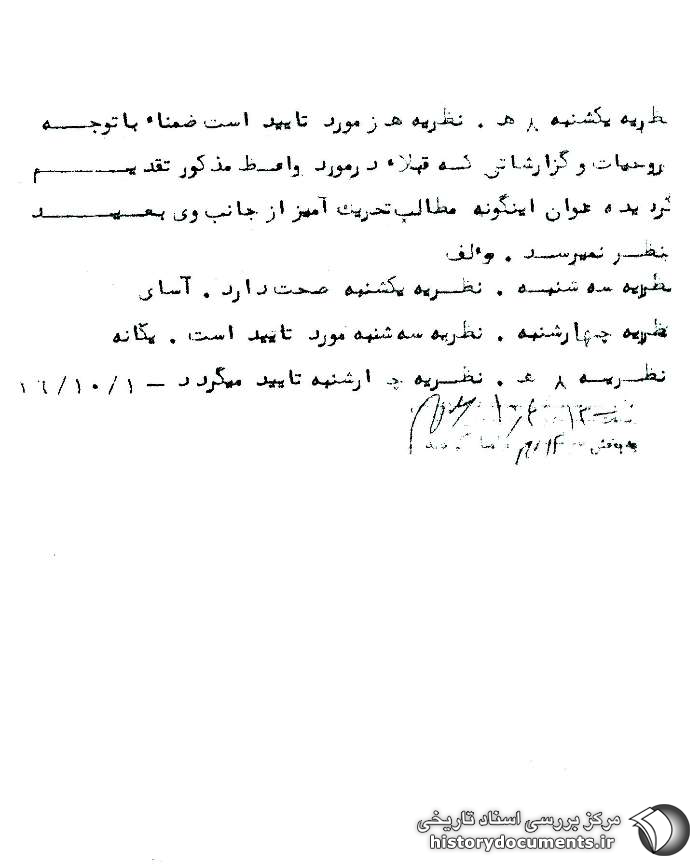 ظریه یکشنبه ۸ هـ . نظریه هـ ز مورد تایید است ضمناء با توجه
روحیات و گزارشاتی که قبلاء در مورد واعظ مذکور تقدیم
گردیده عنوان اینگونه مطالب تحریک آمیز از جانب وی بعید
بنظر نمیرسد .
نظریه سه شنبه . نظریه یکشنبه صحت دارد . آسای
نظریه چهارشنبه . نظریه سه شنبه مورد تایید است . یگانه
نظریه ۸ هـ . نظریه چ ارشنبه تایید میگردد – ۱۶/۱۰/۱
به بخش
مرکز بررسی اسناد تاریخی
historydocuments.ir